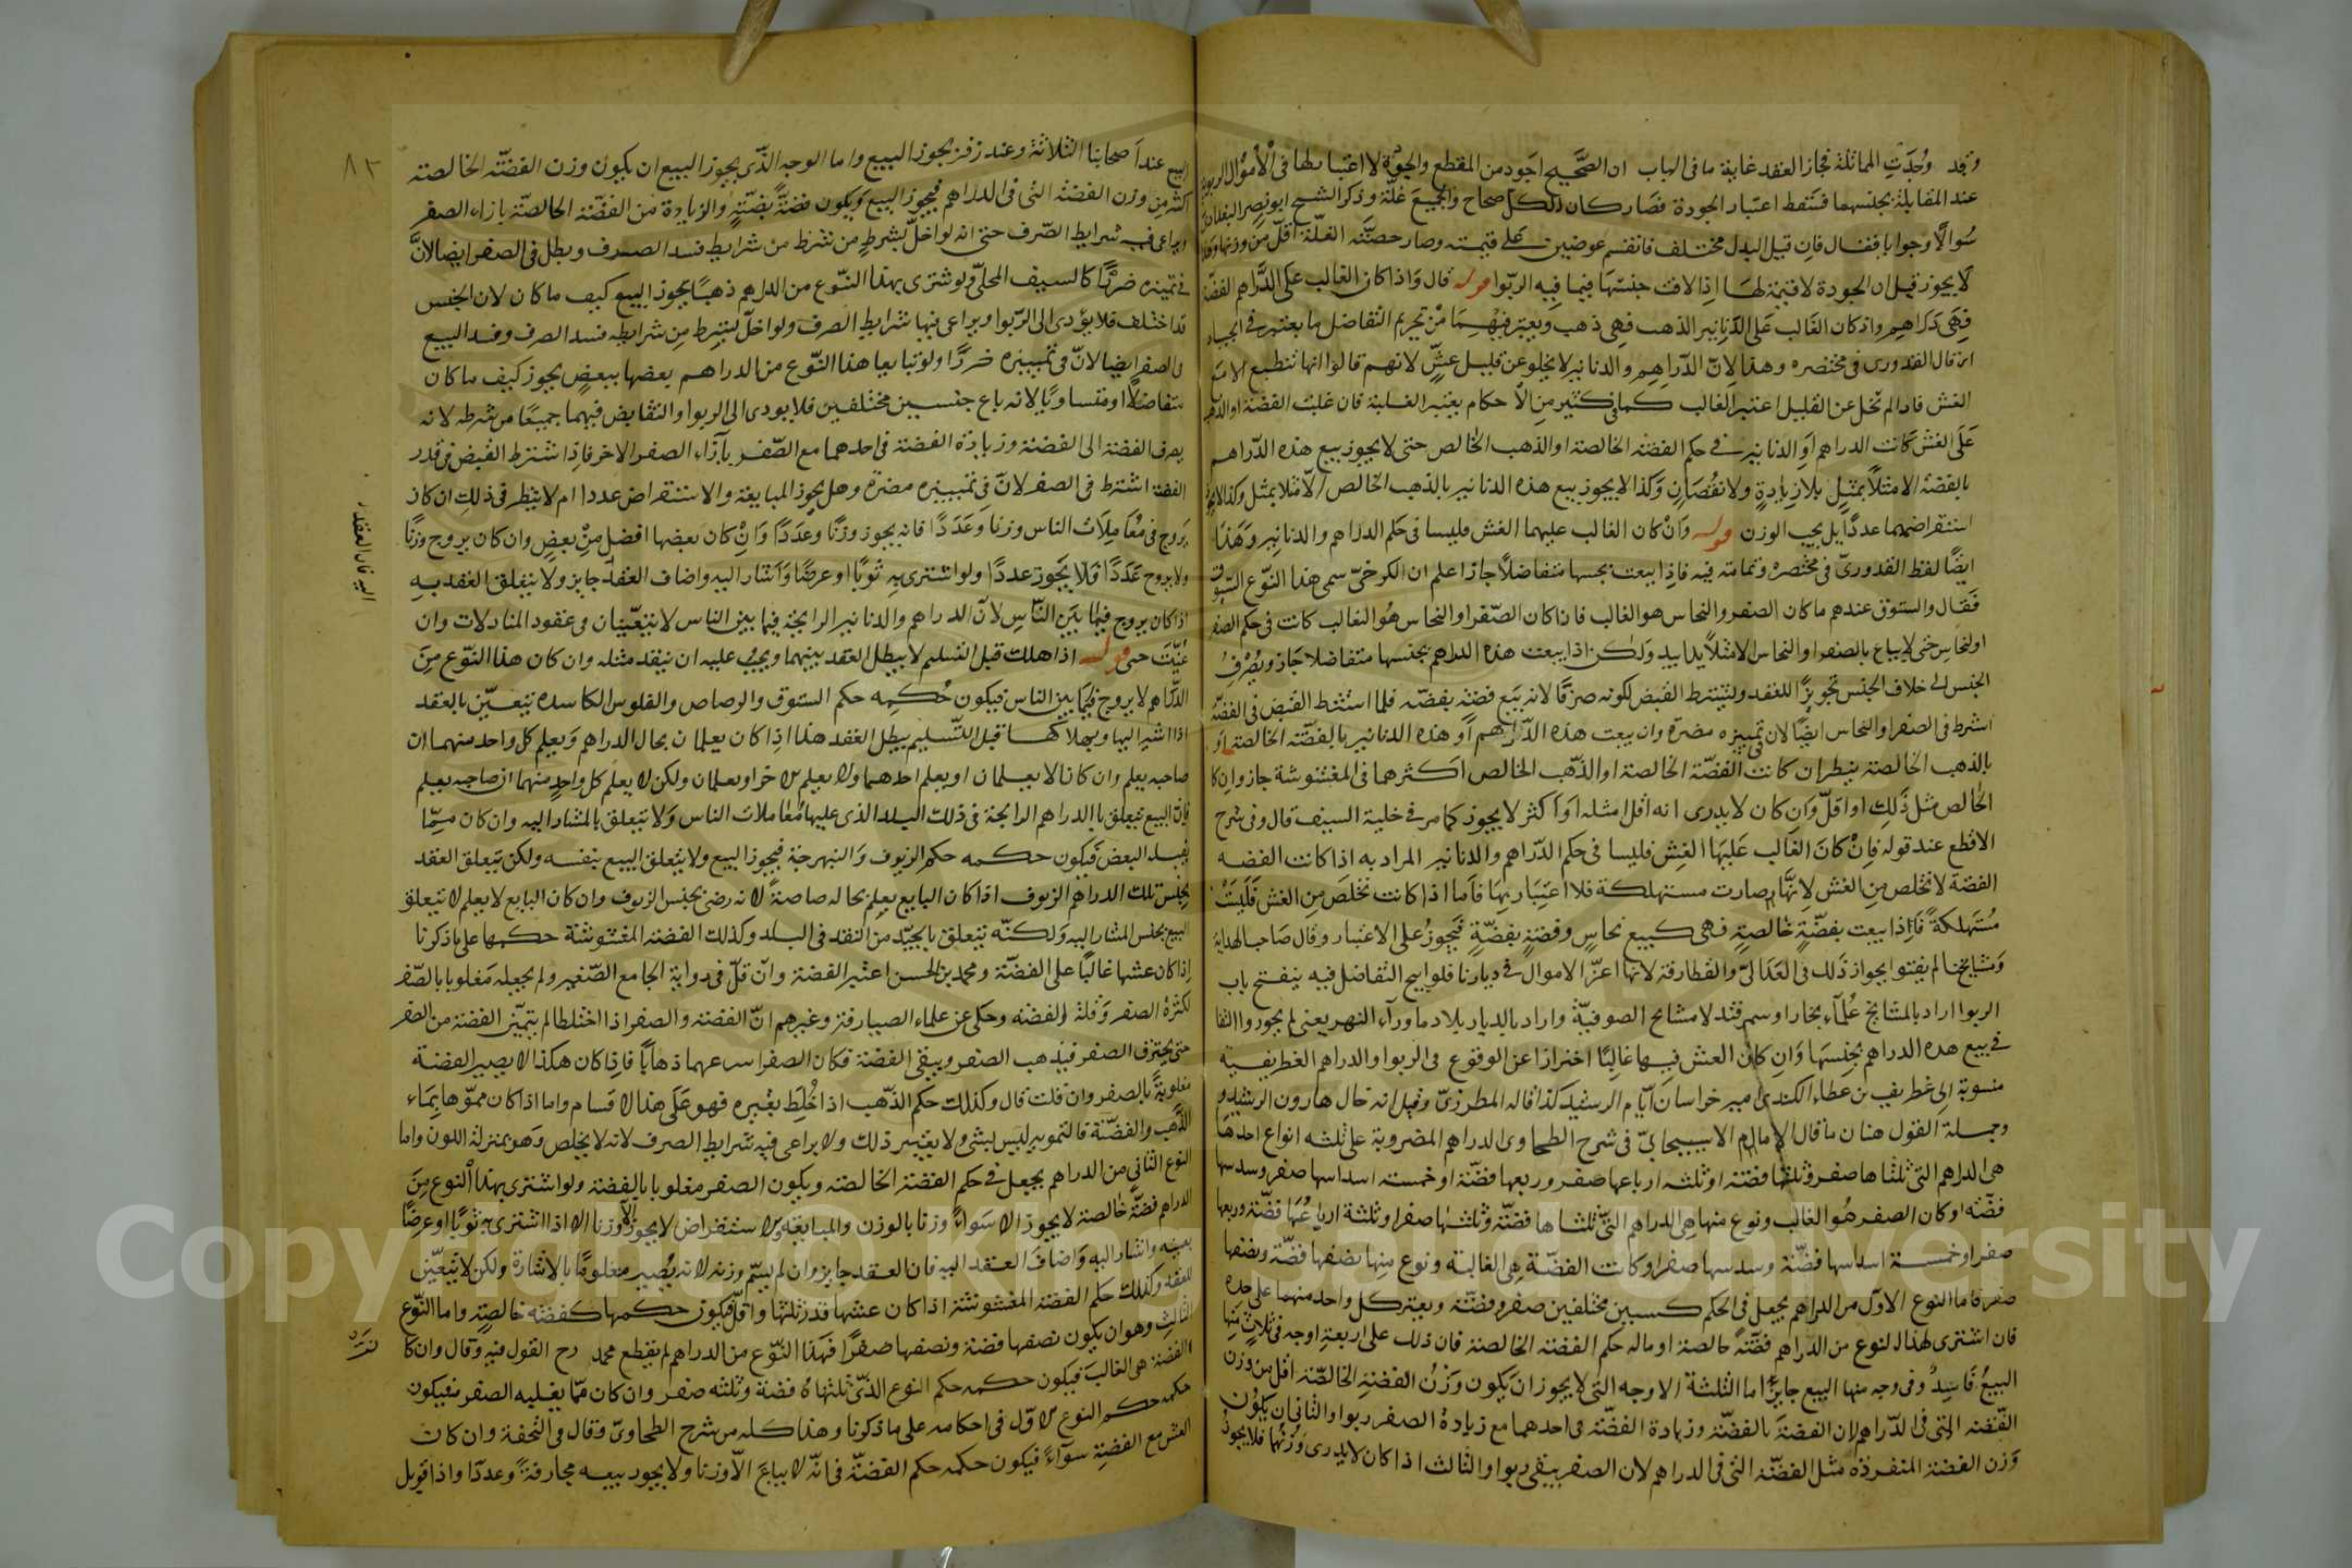 وقد وُجدَتِ المماثلة فجاز العقد غاية ما في الباب ان الصَّحيح اجود من المقطع والجودة لا اعتبار لها في الاموال الربوية
عند المقابلة بجنسها فسقط اعتبار الجودة فصار كان الكل صحاح والجميع غلة وذكر الشيخ ابو نصر البغدادى
سُوالًا وجوابا فقال فان قيل البدل مختلف فانقسم عوضين على قيمته وصار حصَّة الغلّة اقلّ من وزنها
لا يجوز قيل ان الجودة لا قيمة لها اذا لاقت جنسها فيما فيه الربوا قوله قال واذا كان الغالب على الدراهم الفضة
فهى دَراهم واذ كان الغالب على الدنانير الذهب فهى ذهب ويعتبر فيهما من تحريم التفاضل ما يعتبر في الجياد
قال القدورى في مختصره وهذا لان الدّراهم والدنانير لا يخلو عن قليل غشّ لانهم قالوا انها تنطبع الا مع
الغش فاذا لم تخل عن القليل اعتبر الغالب كما في كثير من الاحكام يعتبر الغلبة فان غلبت الفضة او الذهب
على الغش كانت الدراهم او الدنانير في حكم الفضة الخالصة او الذهب الخالص حتى لا يجوز بيع هذه الدّراهم
بالفضة الا مثلًا بمثل بلا زيادةٍ ولا نقصَان وكذا لا يجوز بيع هذه الدنانير بالذهب الخالص الا مثلا بمثل وكذا لا يجوز
استقراضهما عددًا بل يجب الوزن قوله وان كان الغالب عليهما الغش فليسا في حكم الدراهم والدنانير وهذا
ايضًا لفظ القدورىّ في مختصره وتمامته فيه فاذا بيعت بجنسها متفاضلًا جاز اعلم ان الكرخىّ سمى هذا النّوع السّتوق
فقال والستوق عندهم ما كان الصفر والنحاس هو الغالب فاذا كان الصّفر او النحاس هُو الغالب كانت في حكم الصفر
او النحاس حتى لا يباع بالصفر او النحاس الا مثلًا يدا بيد ولكن اذا بيعت هذه الدراهم بجنسها متفاضلا جَاز ويُصْرفُ
الجنس الى خلاف الجنس تجويزًا للعقد ويشترط القبض لكونه صرفًا لانه بَيع فضةٍ بفضّه فلما اشترط القبض في الفضّة
اشترط في الصفر او النحاس ايضًا لان في تمييزه مضرة وان بيعت هذه الدّراهم او هذه الدنانير بالفضّة الخالصة او
بالذهب الخالصة ينظر ان كانت الفضّة الخالصة او الذّهب الخالص اكثر مما في المغشوشة جاز وان كا
الخالص مثل ذَلك او اقلّ وَان كان لا يدرى انه اقل او مثله اوَ اكثر لا يجوز كما مر في حلية السيف قال وفي شرح
الاقطع عند قوله فان كانَ الغَالب عَليهَا الغِش فليسا في حكم الدّراهم والدنانير المراد به اذا كانت الفضه
الفضة لا تخلص من الغش لانّها صارت مستهلكة فلا اعتبَار بهَا فاما اذا كانت تخلصَ مِن الغش فليسَتْ
مُستَهلكةً فاذا بيعت بفضّةٍ خالصةٍ فهى كبيع نحاسٍ وفضةٍ بفضّةٍ فيَجوزُ على الاعتبار وقال صَاحب الهداية
وَمَشايخنا لم يفتوا بجواز ذَلك في العَدَاليّ والغطارفة لانها اعزّ الاموال في ديارنا فلو ابيح التفاضل فيه ينفتح باب
الربوا اراد بالمشايخ علماء بخارا وسمرقند لا مشايخ الصوفيّة واراد بالديار بلاد ما ورآء النهر يعنى لم يجوزوا التفا
في بيع هذه الدراهم بجنسها وَان كان الغش فيها غالبًا احترازا عن الوقوع في الربوا والدراهم الغطريفية
منسوبة الى غطريف بن عطاء الكندى امير خراسان ايّام الرشيد كذا قاله المطرزىّ وقيل انه خال هارون الرشيد
وجملة القول هنا ن ما قال الامام الاسبيجابىّ في شرح الطحاوى الدراهم المضروبة على ثلثه انواع احدهَا
هى الدراهم التى ثلثاها صفر وثلثها فضة او ثلثه ارباعها صفر وربعها فضّة او خمسة اسداسها صفر وسدسها
فضّه او كان الصفر هُو الغالب ونوع منها هى الدراهم التىّ ثلثاها فضّة وثلثها صفر او ثلثة ارباعُهَا فضّة وربعها
صفر او خمسة اسداسها فضّة وسدسها صفر او كانت الفضّة هى الغالبة ونوع منها نصفها فضّة ونصفها
صفر فاما النوع الاول من الدراهم يجعل في الحكم كسيين مختلفين صفر وفضّة ويعتبر كل واحد منهما على حده
فان اشترى بهذا النوع من الدراهم فضّةً خالصة او ماله حكم الفضه الخالصة فان ذلك على اربعة اوجه في ثلاث منها
البيعُ فَاسِدٌ وفي وجه منها البيع جايز اما الثلثة الاوجه التى لا يجوز ان يكون وَزنُ الفضة الخالصّة اقل من وزن
الفضه التى في الدّراهم لان الفضةَ بالفضّة وزيادة الفضّة في احدهما مع زيادة الصفر ربوا والثانى ان يكوُن
وَزن الفضة المنفردة مثل الفضّة التى في الدراهم لان الصفر يبقى ربوا والثالث اذا كان لا يدرى وَزنها فلا يجوز
٨٢
البيع عند اصحابنا الثلاثة وعند زفر يجوز البيع واما الوجه الذّى يجوز البيع ان يكون وزن الفضّة الخالصة
اكثر من وزن الفضّة التى في الدراهم فيجوز البيع ويكون فضةً بفضّةٍ والزيادة من الفضّة الخالصّة بازاء الصفر
ويراعى فيه شرايط الصّرف حتى انه لو اخلّ بشرطٍ من شرط من شرايط فسد الصرف وبطل في الصفر ايضا لانَّ
في تميزه ضررًا كالسيف المحلىّ ولو اشترى بهذا النّوع من الدراهم ذهبًا يجوز البيع كيف ما كان لان الجنس
قد اختلف فلا يؤدى الى الرّبوا ويراعى فيها شرايط الصرف ولو اخلّ بشرط من شرايطه فسد الصرف وفسد البيع
في الصفر ايضا لانّ في تمييزه ضررًا ولو تبايعا هذا النّوع من الدراهم بعضها ببعضٍ يجوز كيف ما كان
متفاضلًا او متساويًا لانه باع جنسين مختلفين فلا يودى الى الربوا والتقابض فيهما جميعًا من شرطه لانه
يصرف الفضة الى الفضة وزيادة الفضة في احدهما مع الصّفر بآزاء الصفر الاخر فاذا اشترط القبض في قدر
الفضة اشترط في الصفر لانّ في تمييزه مضرة وهل يجوز المبايعة والاستقراض عددا ام لا ينظر في ذلك ان كان
يَروج في مُعَاملاتِ الناس وزنا وعَدَدًا فانه يجوز وزنًا وعددًا وَانْ كان بعضها افضل من بعضٍ وان كان يروج وزنًا
ولا يروج عَدَدًا فلا يَجوز عددًا ولو اشترى به ثوبًا او عرضًا وَاشار اليه واضاف العقدَ جايز ولا يتعلق العقد به
اليه فان العقد
اذا كان يروج فيما بَين النّاسِ لانّ الدراهم والدنانير الرايجة فيما بين الناس لا يتعيّنان في عقود المبادلات وان
عُيّنَتَ حتى قوله اذا هلك قبل التسليم لا يبطل العقد بينهما ويجبُ عليه ان ينقد مثله وان كان هذا النّوع مِنَ
الدّراهم لا يروج فيمَا بين الناس فيكون حُكمه حكم الستوق والرصاص والفلوس الكاسده يتعيّن بالعقد
اذا اشير اليها ويهلاكها قبل التّسليم يبطل العقد هذا اذا كان يعلمان بحال الدراهم وَيعلم كل واحد منهما ان
صاحبه يعلم وان كانا لا يعلمان او يعلم احدهما ولا يعلم الاخر او يعلمان ولكن لا يعلم كل واحدٍ منهما ان صاحبه يعلم
فان البيع يتعلق بالدراهم الرايجة في ذلك البلد الذى عليها مُعاملات الناس وَلا يتعلق بالمشار اليه وان كان ممّا
يقبله البعض فَيكون حكمه حكم الزيوف وَالنبهرجة فيجوز البيع ولا يتعلق البيع بنفسه ولكن يتعلق العقد
بجنس تلك الدراهم الزيوف اذا كان البايع يعلم بحاله خاصةً لانه رضى بجنس الزيوف وان كان البايع لا يعلم لا يتعلق
البيع بجنس المشار اليه وَلكنّه يتعلق بالجيّد من النقد في البلد وكذلك الفضة المغشوشة حكمها على ما ذكرنا
اذا كان غشها غالبًا على الفضّة ومحمد بن الحسن اعتبر الفضة وان قلّ في رواية الجامع الصّغير ولم يجعله مَغلوبا بالصّفر
لكثرة الصفر وقلة الفضه وحكى عن علماء الصيارفة وغيرهم انّ الفضه والصفر اذا اختلطا لم يتميّز الفضة من الصفر
حتى يحترق الصفر فيذهب الصفر ويبقى الفضة فكان الصفر اسرعهما ذهابًا فاذا كان هكذا لا يصير الفضة
مغلوبةً بالصفر وان قلت قال وكذلك حكم الذّهب اذا خُلط بغيره فهو عَلى هذا الاقسام واما اذا كان مموّها بمَاء
الذّهب والفضّة فالتمويه ليس بشئ ولا يعتبر ذلك ولا يراعى فيه شرايط الصرف لانه لا يخلص وَهو بمنزلة اللون واما
النوع الثانى من الدراهم يجعل في حكم الفضة الخالصة ويكون الصفر مغلوبا بالفضة ولو اشترى بهذا النوع مِنَ
الدراهم فضّةً خالصة لا يجوز الا سَواءً وزنا بالوزن والمبايعة والاستقراض لا يجوز الا وزنا الا اذا اشترى به ثوبًا او عرضًا
بعينه واشار اليه وَاضافَ العقد اليه فان العقد جايز وان لم يسمّ وزنه لانه يُصير معلومًا بالاشارة ولكن لا يتعيّن
للعقد وكذلك حكم الفضة المغشوشة اذا كان غشها قدر ثلثها واقلّ فيكون حكمها كفضّه خالصةٍ واما النّوع
الثالث وهو ان يكون نصفها فضة ونصفها صفرًا فهذا النّوع من الدراهم لم يقطع محمد رح القول فيه وَقال وان كا
الفضة هى الغالبَ فيكون حكمه حكم النوع الذىّ ثلثهاه فضة وثلثه صفر وان كان ممّا يغلبه الصفر فيكون
حكمه حكم النوع الاوّل في احكامه على ما ذكرنا وهذا كله من شرح الطحاوىّ وقال في التحفة وان كان
الغش مع الفضة سوآءً فيكون حكمه حكم الفضّة في انّه لا يباعَ الاّ وزنا ولا يجوز بيعه مجازفةً وعددًا واذا قوبل
Copyright © King Saud University